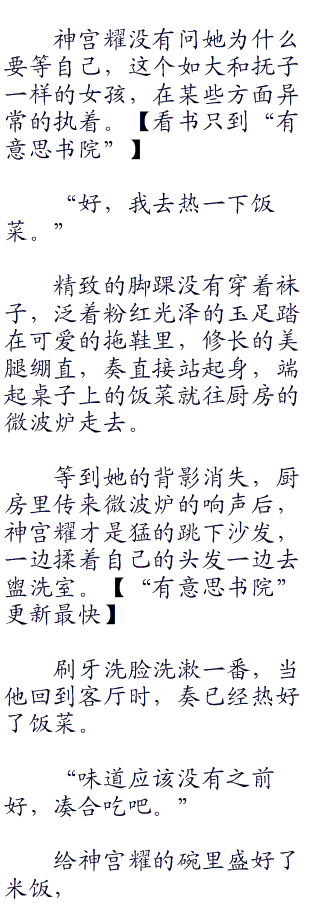 神宫耀没有问她为什么
要等自己，这个如大和抚子
一样的女孩，在某些方面异
常的执着。【看书只到“有
意思书院”】
“好，我去热一下饭
菜。”
精致的脚踝没有穿着袜
子，泛着粉红光泽的玉足踏
在可爱的拖鞋里，修长的美
腿绷直，奏直接站起身，端
起桌子上的饭菜就往厨房的
微波炉走去。
等到她的背影消失，厨
房里传来微波炉的响声后，
神宫耀才是猛的跳下沙发，
一边揉着自己的头发一边去
盥洗室。【“有意思书院”
更新最快】
刷牙洗脸洗漱一番，当
他回到客厅时，奏已经热好
了饭菜。
“味道应该没有之前
好，凑合吃吧。”
给神宫耀的碗里盛好了
米饭，